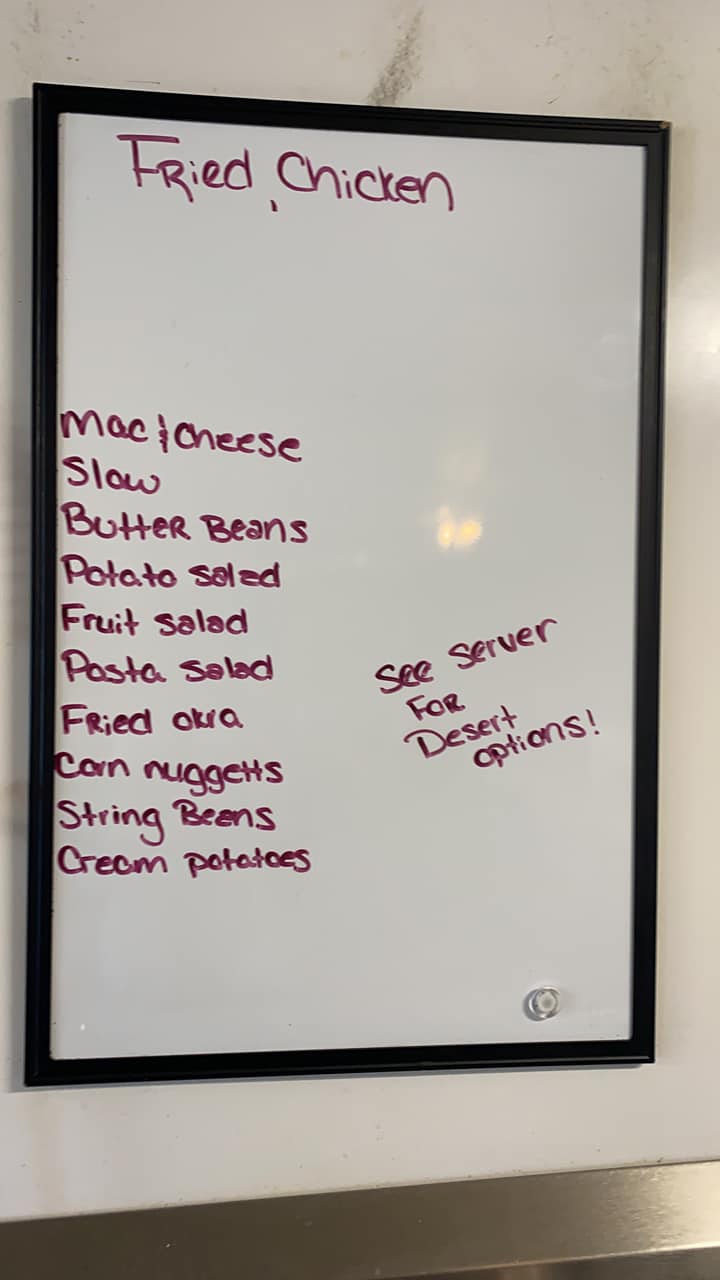 Fried Chicken
Mac & Cheese
Slaw
Butter Beans
Potato Salad
Fruit Salad
Pasta Salad
Fried okra
Corn nuggetts
String Beans
Cream potatoes
See Server
For
Desert
options!